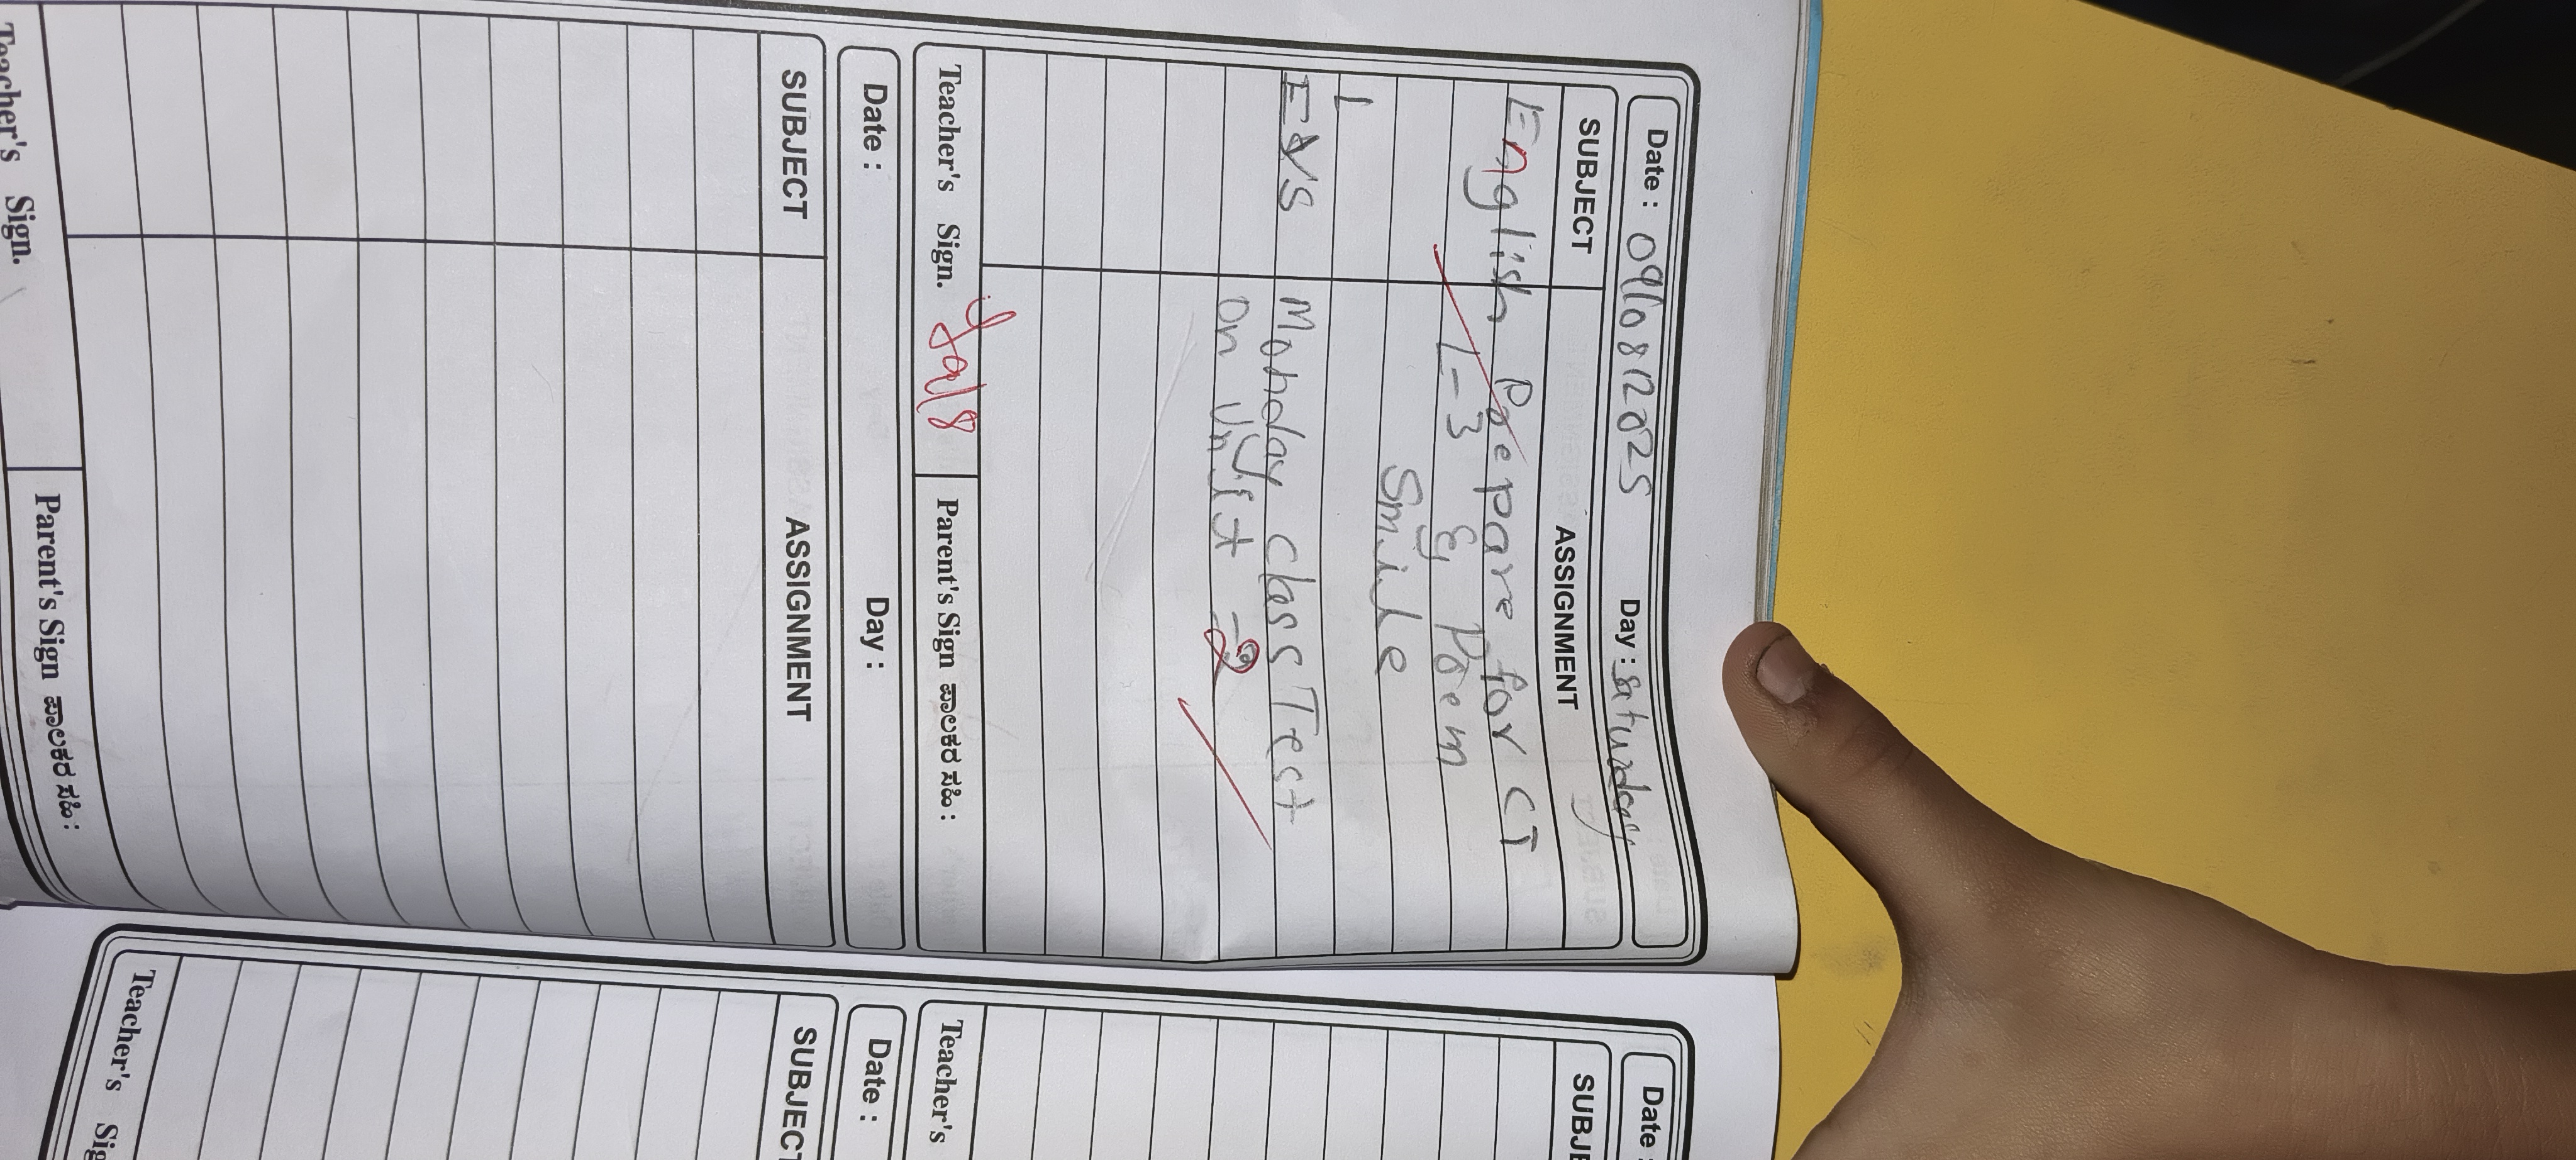 Date : 09/08/2025 Day : Saturday
SUBJECT ASSIGNMENT
English Prepare for CT
L-3 & Poem
Smile
EVS Monday class Test
on Unit -2
Teacher's Sign. Parent's Sign ಪಾಲಕರ ಸಹಿ :
Date : Day :
SUBJECT ASSIGNMENT
Teacher's Sign. Parent's Sign ಪಾಲಕರ ಸಹಿ :
Date :
SUBJE
Teacher's
Date :
SUBJECT
Teacher's Sig